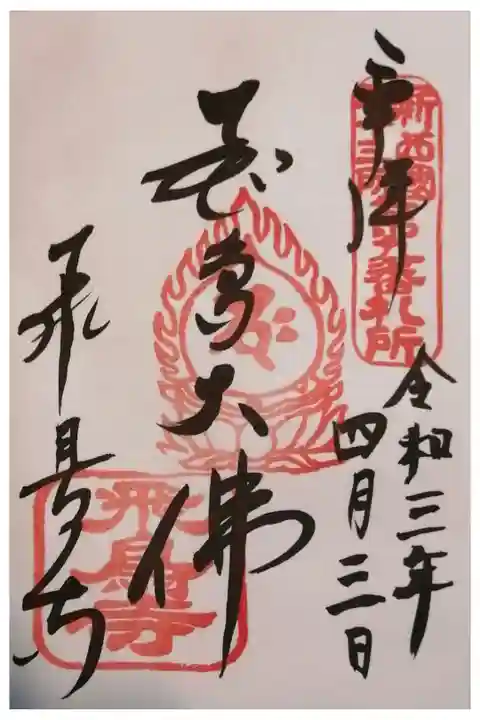 奉拝
新西國
番札所
令和三年
四月三日
飛鳥大佛
飛鳥寺
飛鳥寺